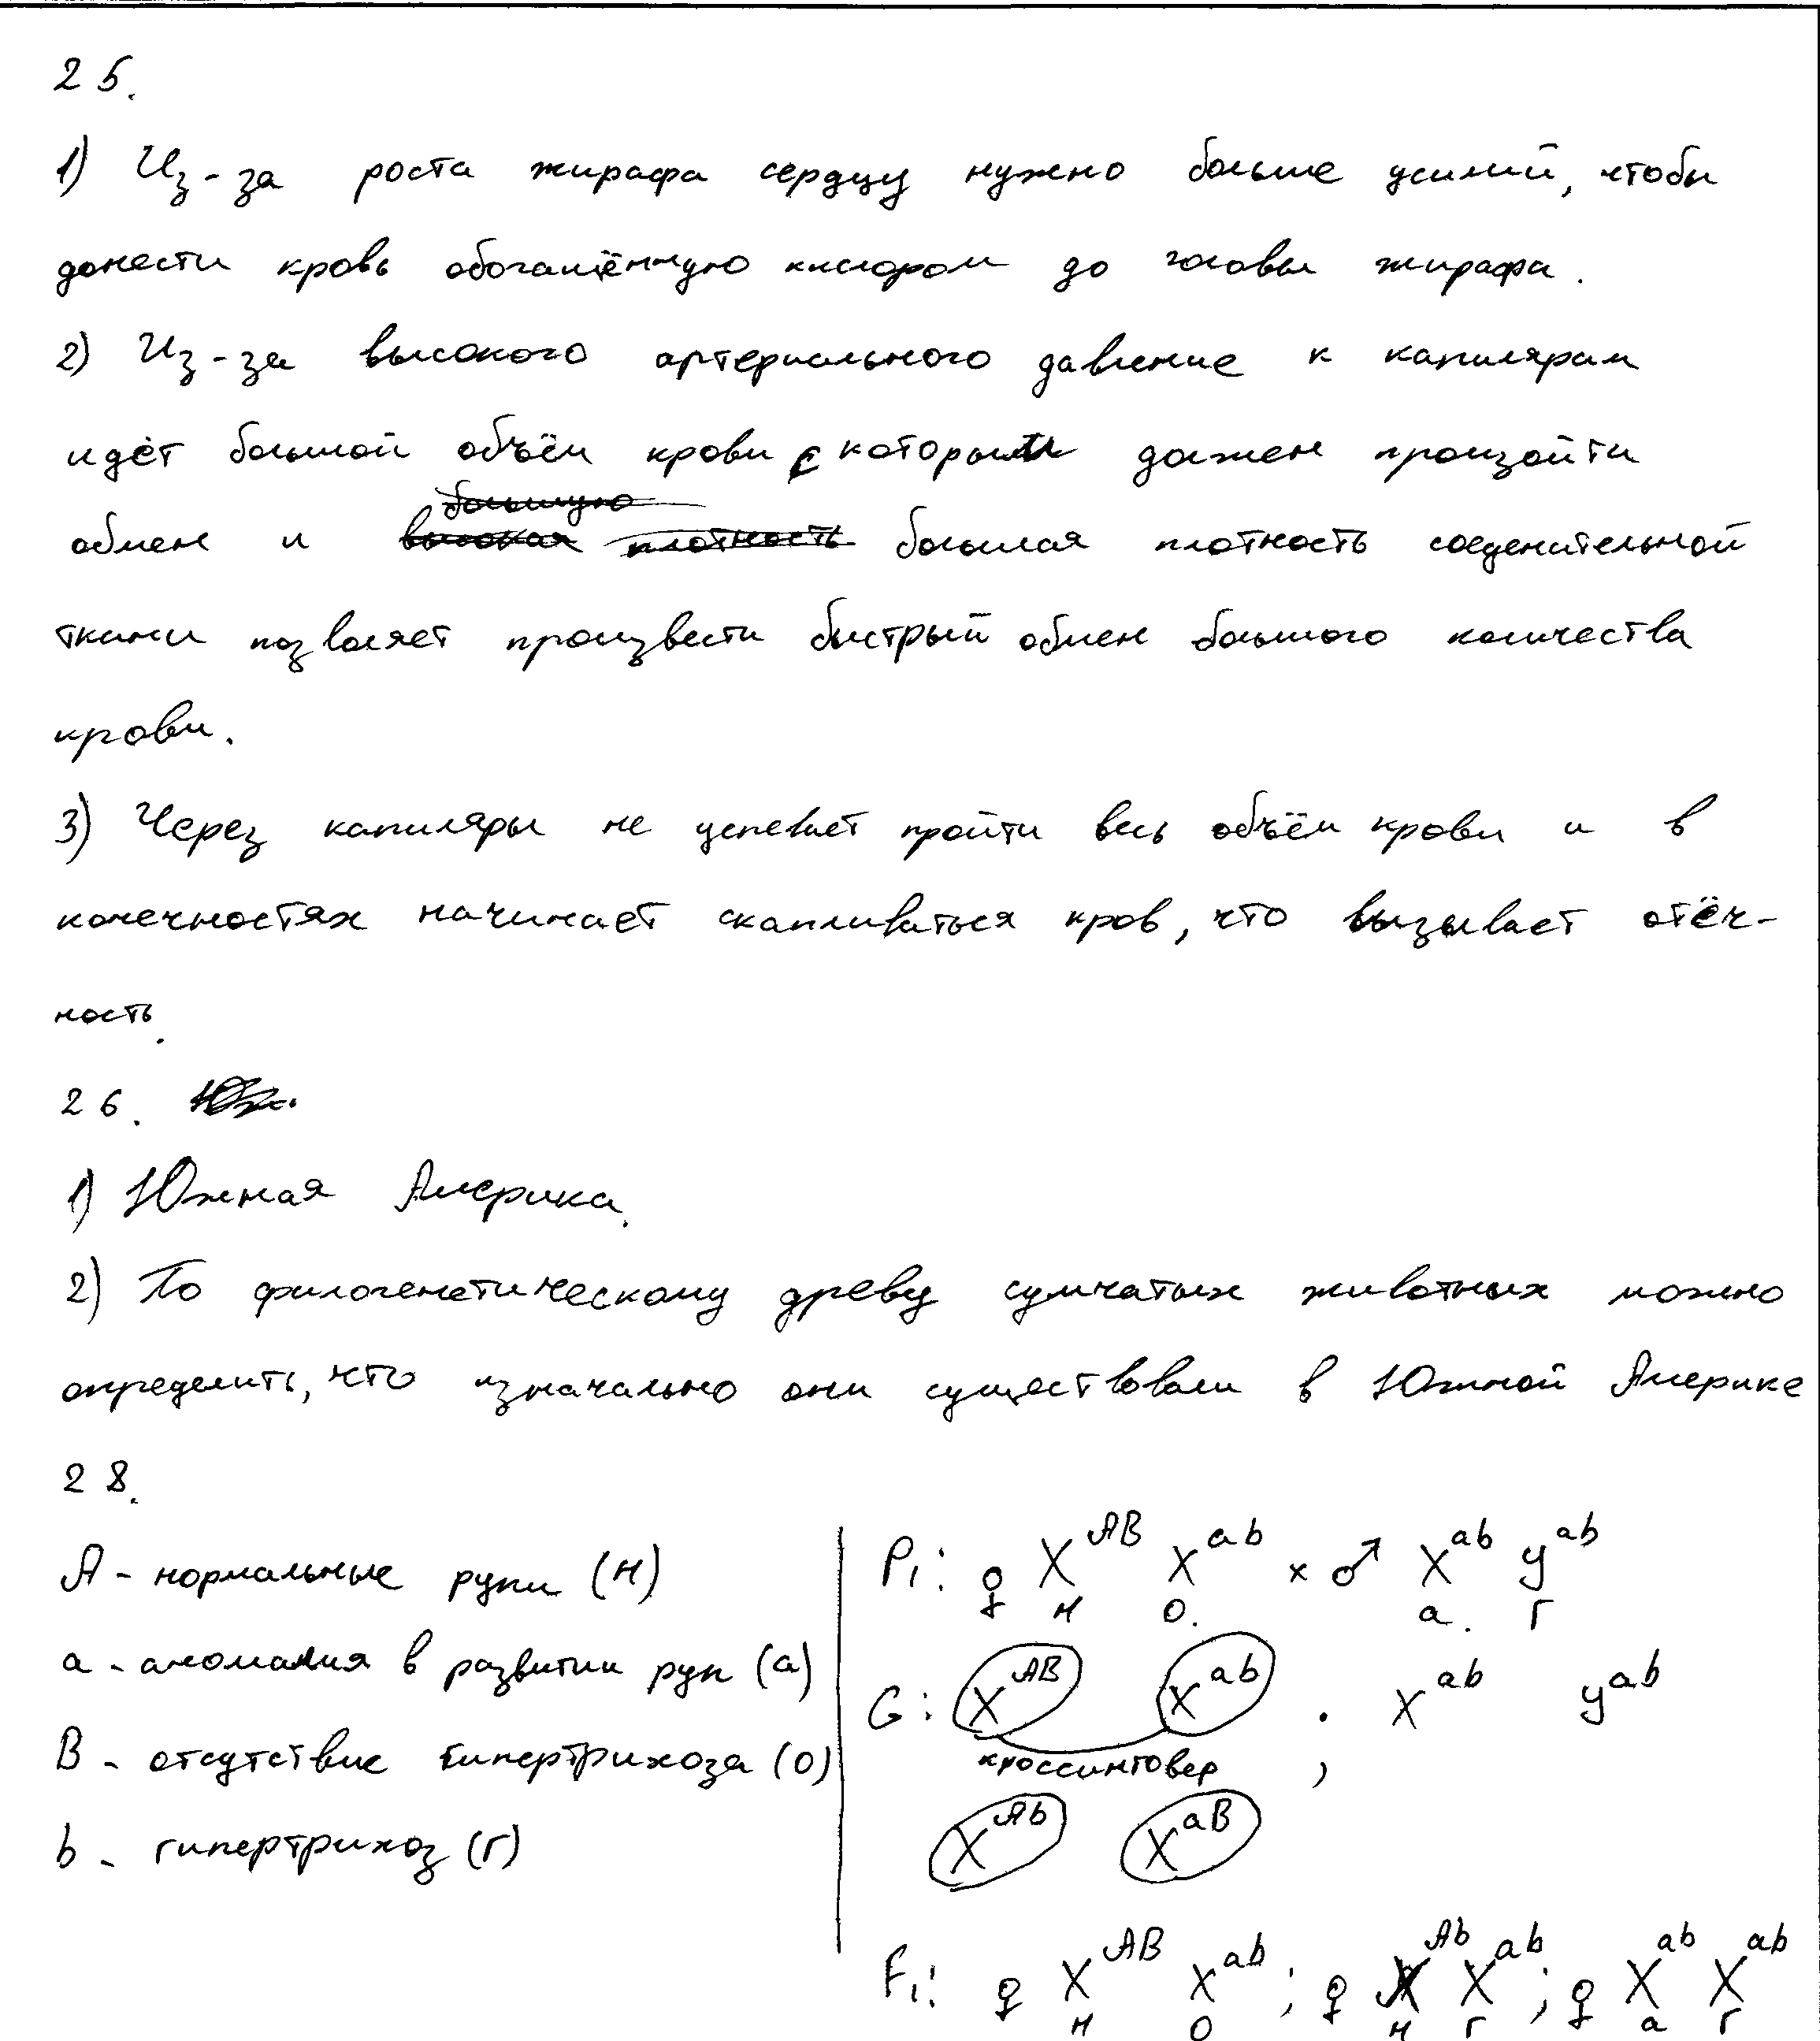 25.
1) Из-за роста жирафа сердцу нужно больше усилий, чтобы
донести кровь обогащённую кислором до головы жирафа.
2) Из-за высокого артериального давление к капилярам
идёт большой объём крови с которым должен произойти
обмен и большая плотность соеденительной
ткани позволяет произвести быстрый обмен большого количества
крови.
3) Через капиляры не успевает пройти весь объём крови и в
конечностях начинает скапливаться кров, что вызывает отёч-
ность.
26.
1) Южная Америка.
2) По филогенетическому древу сумчатых животных можно
определить, что изначально они существовали в Южной Америке
28.
А - нормальные руки (н)
а - аномалия в развитии рук (а)
В - отсутствие гипертрихоза (о)
b - гипертрихоз (г)
P₁: ♀ X^AB X^ab × ♂ X^ab y^ab
н о. а. г
G: X^AB X^ab . X^ab y^ab
кроссинговер ,
X^Ab X^aB
F₁: ♀ X^AB X^ab ; ♀ X^Ab X^ab ; ♀ X^ab X^ab
н о н г а г